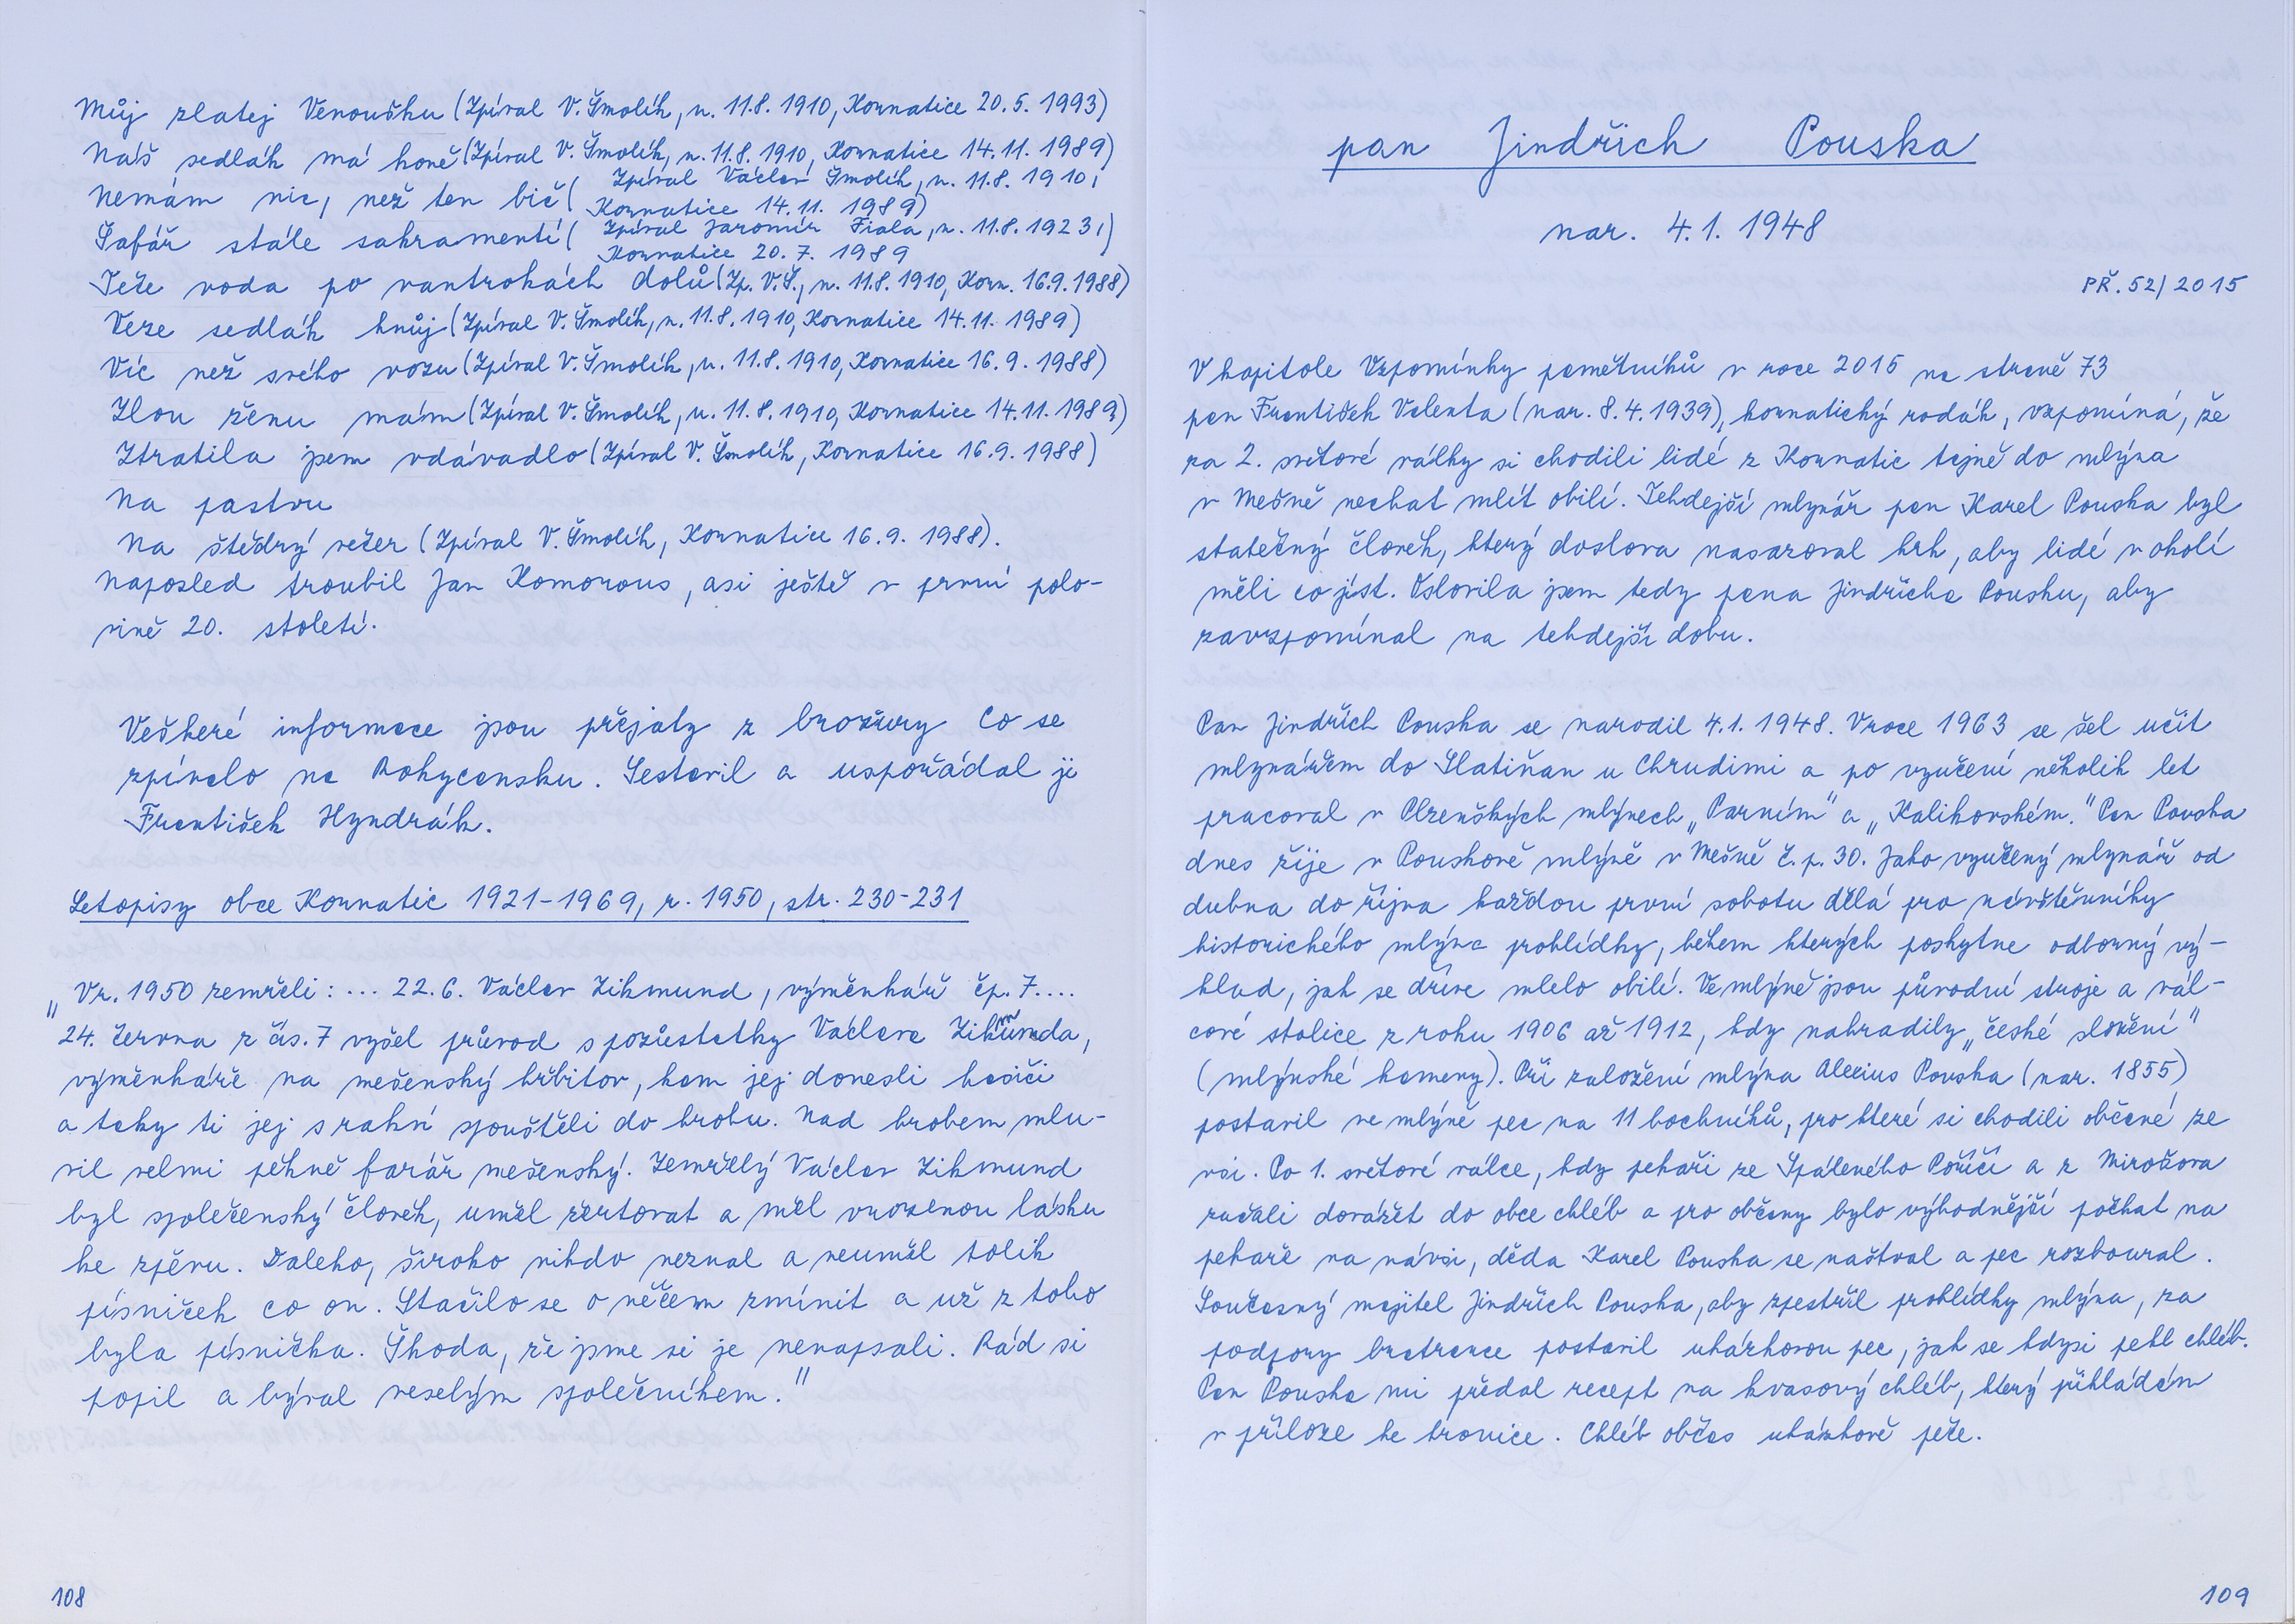 Můj zlatej Venoušku (Zpíval V. Šmolík, n. 11.8. 1910, Kornatice 20.5. 1993)
Náš sedlák má koně (Zpíval V. Šmolík, n. 11.8. 1910, Kornatice 14.11. 1989)
Nemám nic, než ten bič (Zpíval Václav Šmolík, n. 11.8. 1910,
Kornatice 14.11. 1989)
Šafář stále sakramentí (Zpíval Jaromír Fiala, n. 11.8. 1923,)
Kornatice 20.7. 1989
Teče voda po vantrokách dolů (Zp. V.Š., n. 11.8. 1910, Korn. 16.9. 1988)
Veze sedlák hnůj (Zpíval V. Šmolík, n. 11.8. 1910, Kornatice 14.11. 1989)
Víc než svého vozu (Zpíval V. Šmolík, n. 11.8. 1910, Kornatice 16.9. 1988)
Zlou ženu mám (Zpíval V. Šmolík, n. 11.8. 1910, Kornatice 14.11. 1989)
Ztratila jsem vdávadlo (Zpíval V. Šmolík, Kornatice 16.9. 1988)
Na pastvu
Na štědrý večer (Zpíval V. Šmolík, Kornatice 16.9. 1988).
Naposled troubil Jan Komorous, asi ještě v první polo-
vině 20. století.
Veškeré informace jsou přejaty z brožury Co se
zpívalo na Rokycansku. Sestavil a uspořádal je
František Hyndrák.
Letopisy obce Kornatic 1921-1969, r. 1950, str. 230-231
„V r. 1950 zemřeli: ... 22.6. Václav Zikmund, výměnkář čp. 7....
24. června z čís. 7 vyšel průvod s pozůstatky Václava Zikmunda,
výměnkáře na mešenský hřbitov, kam jej donesli hasiči
a taky ti jej s rakví spouštěli do hrobu. Nad hrobem mlu-
vil velmi pěkně farář mešenský. Zemřelý Václav Zikmund
byl společenský člověk, uměl žertovat a měl vrozenou lásku
ke zpěvu. Daleko, široko nikdo neznal a neuměl tolik
písniček co on. Stačilo se o něčem zmínit a už z toho
byla písnička. Škoda, že jsme si je nenapsali. Rád si
popil a býval veselým společníkem."
108
pan Jindřich Pouska
nar. 4.1. 1948
PŘ. 52/2015
V kapitole Vzpomínky pamětníků v roce 2015 na straně 73
pan František Valenta (nar. 8.4. 1939), kornatický rodák, vzpomíná, že
za 2. světové války si chodili lidé z Kornatic tajně do mlýna
v Mešně nechat mlít obilí. Tehdejší mlynář pan Karel Pouska byl
statečný člověk, který doslova nasazoval krk, aby lidé v okolí
měli co jíst. Oslovila jsem tedy pana Jindřicha Pousku, aby
zavzpomínal na tehdejší dobu.
Pan Jindřich Pouska se narodil 4.1. 1948. V roce 1963 se šel učit
mlynářem do Slatiňan u Chrudimi a po vyučení několik let
pracoval v Plzeňských mlýnech „Parním" a „Kalikovském." Pan Pouska
dnes žije v Pouskově mlýně v Mešně č.p. 30. Jako vyučený mlynář od
dubna do října každou první sobotu dělá pro návštěvníky
historického mlýna prohlídky, během kterých poskytne odborný vý-
klad, jak se dříve mlelo obilí. Ve mlýně jsou původní stroje a vál-
cové stolice z roku 1906 až 1912, kdy nahradily „české složení"
(mlýnské kameny). Při založení mlýna Alexius Pouska (nar. 1855)
postavil ve mlýně pec na 11 bochníků, pro které si chodili občané ze
vsi. Po 1. světové válce, kdy pekaři ze Spáleného Poříčí a z Mirošova
začali dovážet do obce chléb a pro občany bylo výhodnější počkat na
pekaře na návsi, děda Karel Pouska se naštval a pec rozboural.
Současný majitel Jindřich Pouska, aby zpestřil prohlídky mlýna, za
podpory bratrance postavil ukázkovou pec, jak se kdysi pekl chléb.
Pan Pouska mi předal recept na kvasový chléb, který přikládám
v příloze ke kronice. Chléb občas ukázkově peče.
109